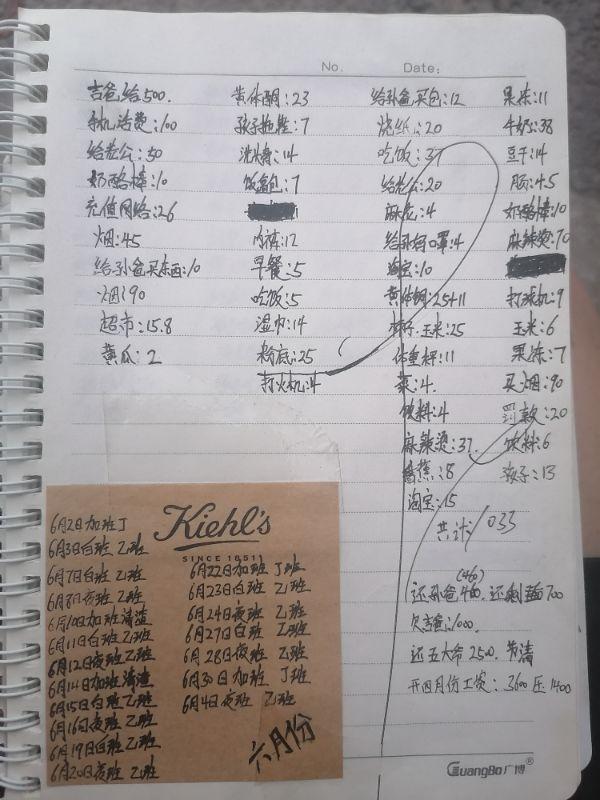 No.
Date:
吉爸给500.
手机话费:100
给老公:50
奶酪棒:10
充值网络:26
烟:45
给孙爸买东西:10
烟:90
超市:15.8
黄瓜:2
黄体酮:23
孩子拖鞋:7
洗澡:14
饭盒包:7
内裤:12
早餐:5
吃饭:5
湿巾:14
粉底:25
打火机:4
给孙爸买包:12
烧纸:20
吃饭:37
给老公:20
麻花:4
口罩:4
淘宝:10
黄体酮:25+11
玉米:25
体重秤:11
菜:4.
饮料:4
麻辣烫:37.
香蕉:8
淘宝:15
果冻:11
牛奶:38
豆干:14
肠:4.5
奶酪棒:10
麻辣烫:70
打火机:9
玉米:6
果冻:7
买烟:90
罚款:20
饮料:6
孩子:13
共计1033
(460)
还孙爸400.还剩 700
欠 :1000.
还五大命2500.
开四月份工资:3600压1400
Kiehl's
SINCE 1851
6月2日加班丁
6月3日白班 乙班
6月7日白班 乙班
6月8日夜班 乙班
6月10日加班清渣
6月11日白班乙班
6月12日夜班乙班
6月14日加班清渣
6月15日白班乙班
6月16日夜班 乙班
6月19日白班乙班
6月20日夜班 乙班
6月22日加班 丁班
6月23日白班 乙班
6月24日夜班 乙班
6月27日白班 乙班
6月28日夜班 乙班
6月30日加班 丁班
6月4日夜班 乙班
六月份
GuangBo广博®